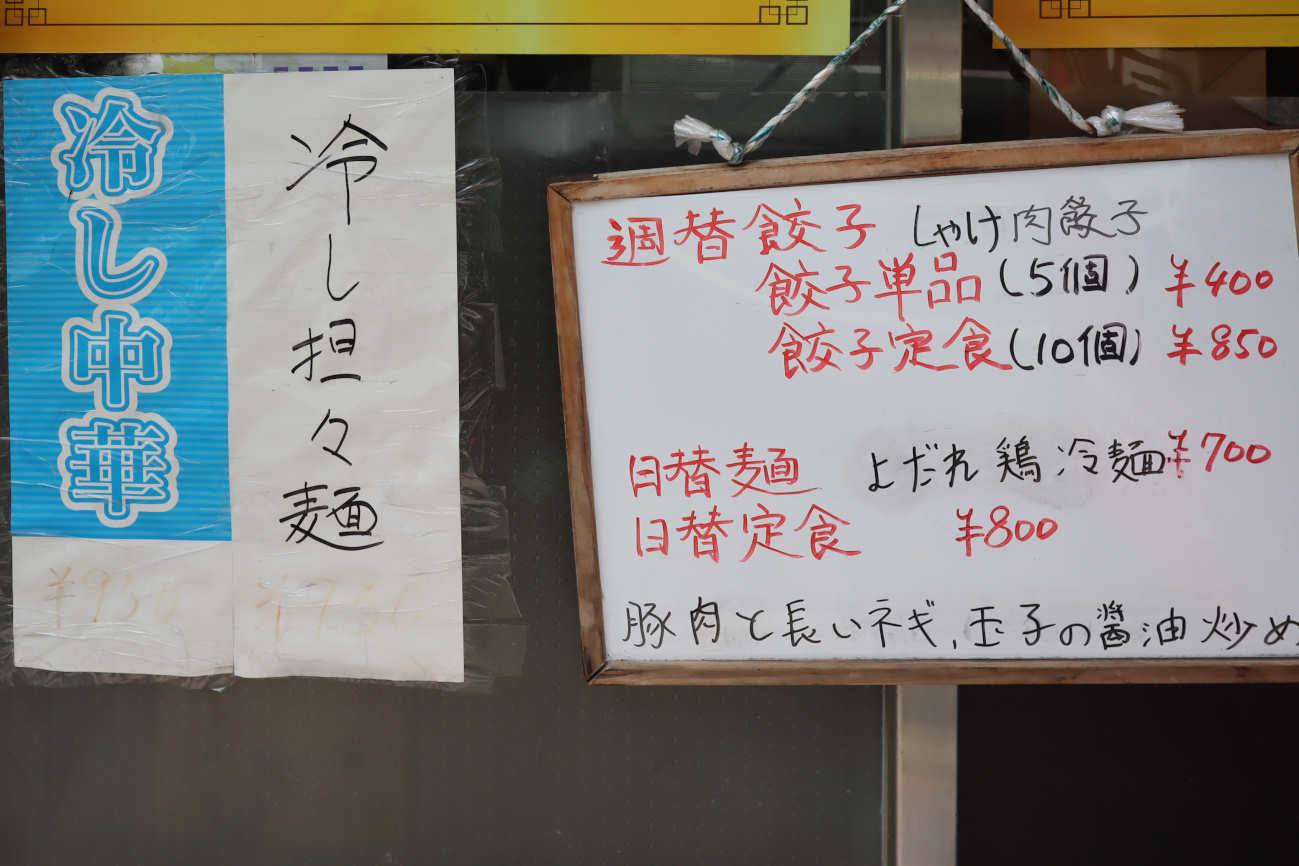 冷し中華
冷し担々麺
週替餃子 しゃけ肉餃子
餃子単品(5個) ¥400
餃子定食(10個) ¥850
日替麺 よだれ鶏冷麺 ¥700
日替定食 ¥800
豚肉と長いネギ,玉子の醤油炒め